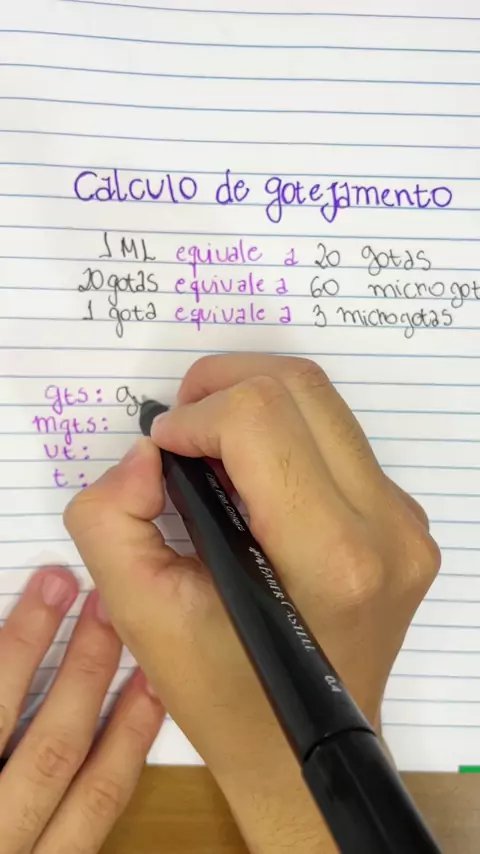 Calculo de gotejamento
1 ML equivale a 20 gotas
20 gotas equivale a 60 microgot
1 gota equivale a 3 microgotas
gts: g
mgts:
vt:
t:
FABER CASTELL
0.4